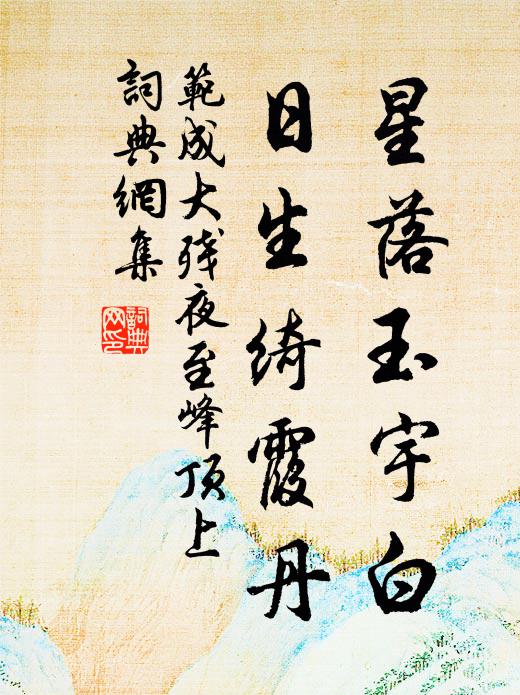 星落玉宇白
日生綺霞丹
範成大殘夜至峰頂上
詞典網集
詞典网印